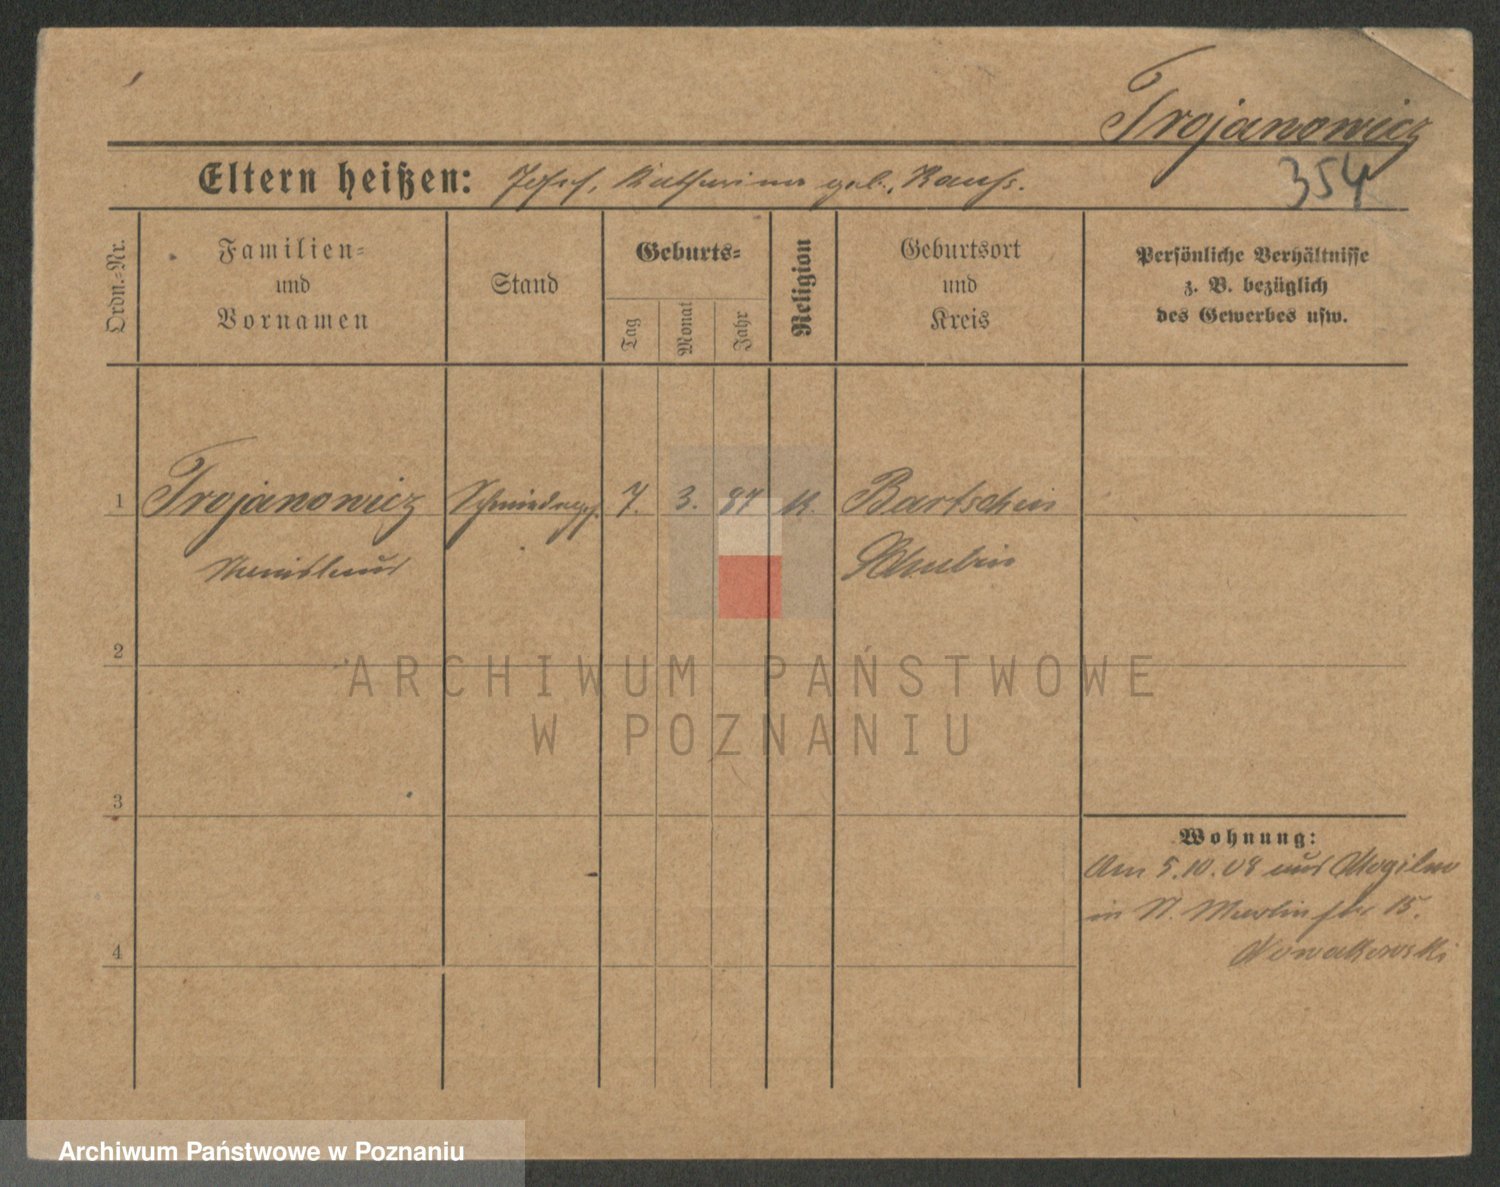 Trojanowicz
354
Eltern heißen: Josef, Katharina geb.
Ordn.-Nr.
Familien-
und
Vornamen
Stand
Geburts-
Tag
Monat
Jahr
Religion
Geburtsort
und
Kreis
Persönliche Verhältnisse
z. B. bezüglich
des Gewerbes usw.
1 Trojanowicz Schmiedeges. 7. 3. 87 K. Bartschin
Stanislaus Schubin
2
ARCHIWUM PAŃSTWOWE
W POZNANIU
3
Wohnung:
Am 5.10.08 aus Mogilno
in St. Martin str 15.
Nowakowski
4
Archiwum Państwowe w Poznaniu